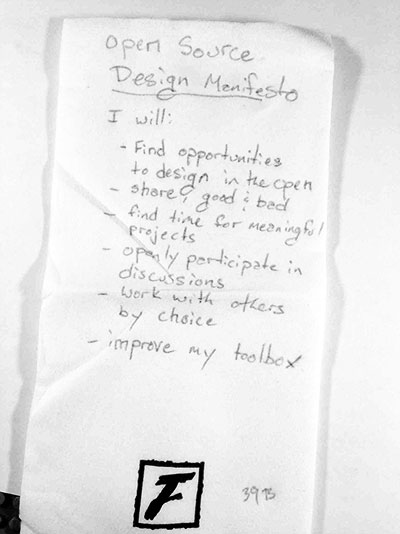 Open Source
Design Manifesto
I will:
- Find opportunities
to design in the open
- share, good & bad
- find time for meaningful
projects
- openly participate in
discussions
- work with others
by choice
- improve my toolbox
F